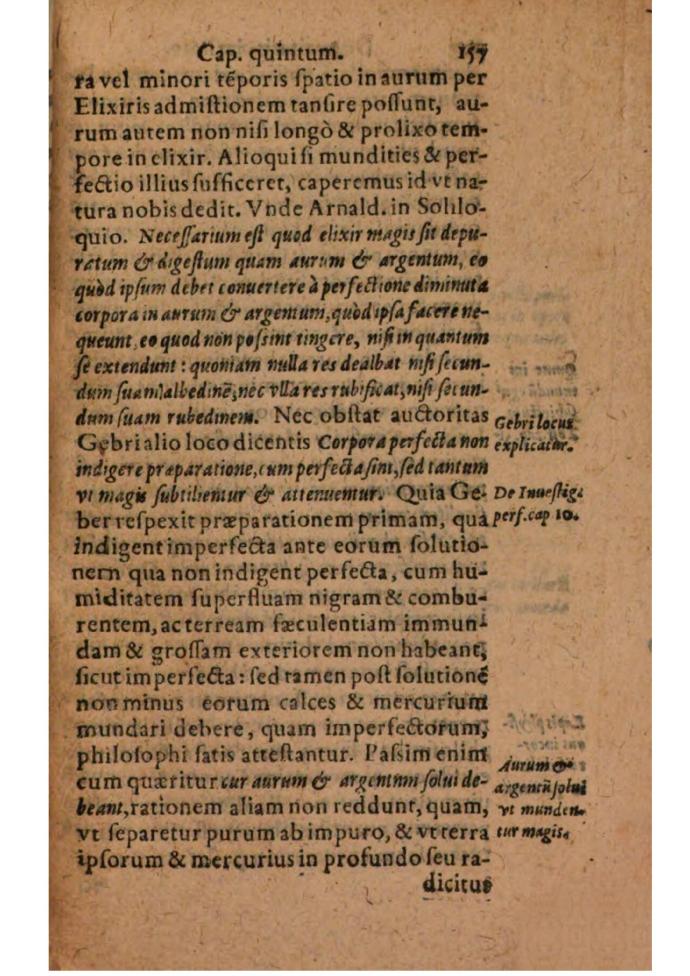 Cap. quintum. 157
ra vel minori tẽporis ſpatio in aurum per
Elixiris admiſtionem tanſire poſſunt, au-
rum autem non niſi longò & prolixo tem-
pore in elixir. Alioqui ſi mundities & per-
fectio illius ſufficeret, caperemus id vt na-
tura nobis dedit. Vnde Arnald. in Solilo-
quio. Neceſſarium eſt quod elixir magis ſit depu-
ratum & digeſtum quam aurum & argentum, eo
quòd ipſum debet conuertere à perfectione diminuta
corpora in aurum & argentum, quòd ipſa facere ne-
queunt, eo quod non poſsint tingere, niſi in quantum
ſe extendunt: quoniam nulla res dealbat niſi ſecun-
dum ſuam albedinẽ, nec vlla res rubificat, niſi ſecun-
dum ſuam rubedinem. Nec obſtat auctoritas
Gebri locus
Gebri alio loco dicentis Corpora perfecta non
explicatur.
indigere præparatione, cum perfecta ſint, ſed tantum
vt magis ſubtilientur & attenuentur. Quia Ge-
De Inueſtig.
ber reſpexit præparationem primam, qua
perf. cap 10.
indigent imperfecta ante eorum ſolutio-
nem qua non indigent perfecta, cum hu-
miditatem ſuperfluam nigram & combu-
rentem, ac terream fæculentiam immun-
dam & groſſam exteriorem non habeant,
ſicut imperfecta: ſed tamen poſt ſolutionẽ
non minus eorum calces & mercurium
mundari debere, quam imperfectorum,
philoſophi ſatis atteſtantur. Paſsim enim
Aurum &
cum quæritur cur aurum & argentum ſolui de-
argentũ ſolui
beant, rationem aliam non reddunt, quam,
vt munden-
vt ſeparetur purum ab impuro, & vt terra
tur magis.
ipſorum & mercurius in profundo ſeu ra-
dicitus